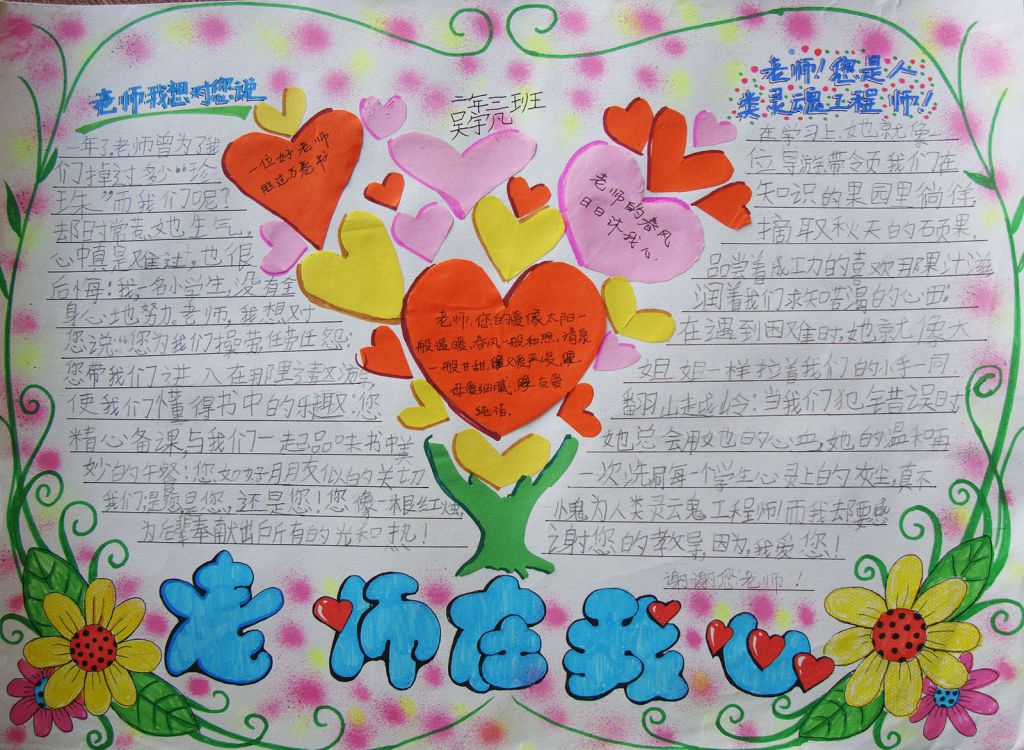 老师我想对您说
一年了,老师曾为了我
们掉过多少“珍
珠”而我们呢?
却时常惹她生气,
心中真是难过,也很
后悔:我一名小学生,没有全
身心地努力。老师,我想对
您说“您为我们操劳任劳任怨;
您带我们
使我们懂得书中的乐趣;您
精心备课,与我们一起品味书中美
妙的午餐;您如好朋友似的关切
我们,是您是您,还是您!您像一根红烛,
为后辈奉献出自所有的光和热!
二年三班
吴宇凡
一位好老师
胜过万卷书
老师的春风
日日沐我心.
老师,您的爱像太阳一
般温暖,春风一般和煦,清泉
一般甘甜,父爱严峻,
母爱细腻,友爱
纯洁.
老师!您是人
类灵魂工程师!
在学习上,她就像
位导游,带领我们在
知识的果园里徜徉,
摘取秋天的硕果,
品尝着成功的喜欢那果汁滋
润着我们求知若渴的心田;
在遇到困难时,她就像大
姐姐一样拉着我们的小手一同
翻山越岭:当我们犯错误时
她总会用她的心血,她的温和再
一次洗涤每一个学生心灵上的灰尘,真不
愧为人类灵魂工程师!而我却要感
谢您的教导,因为,我爱您!
谢谢您老师!
老师在我心